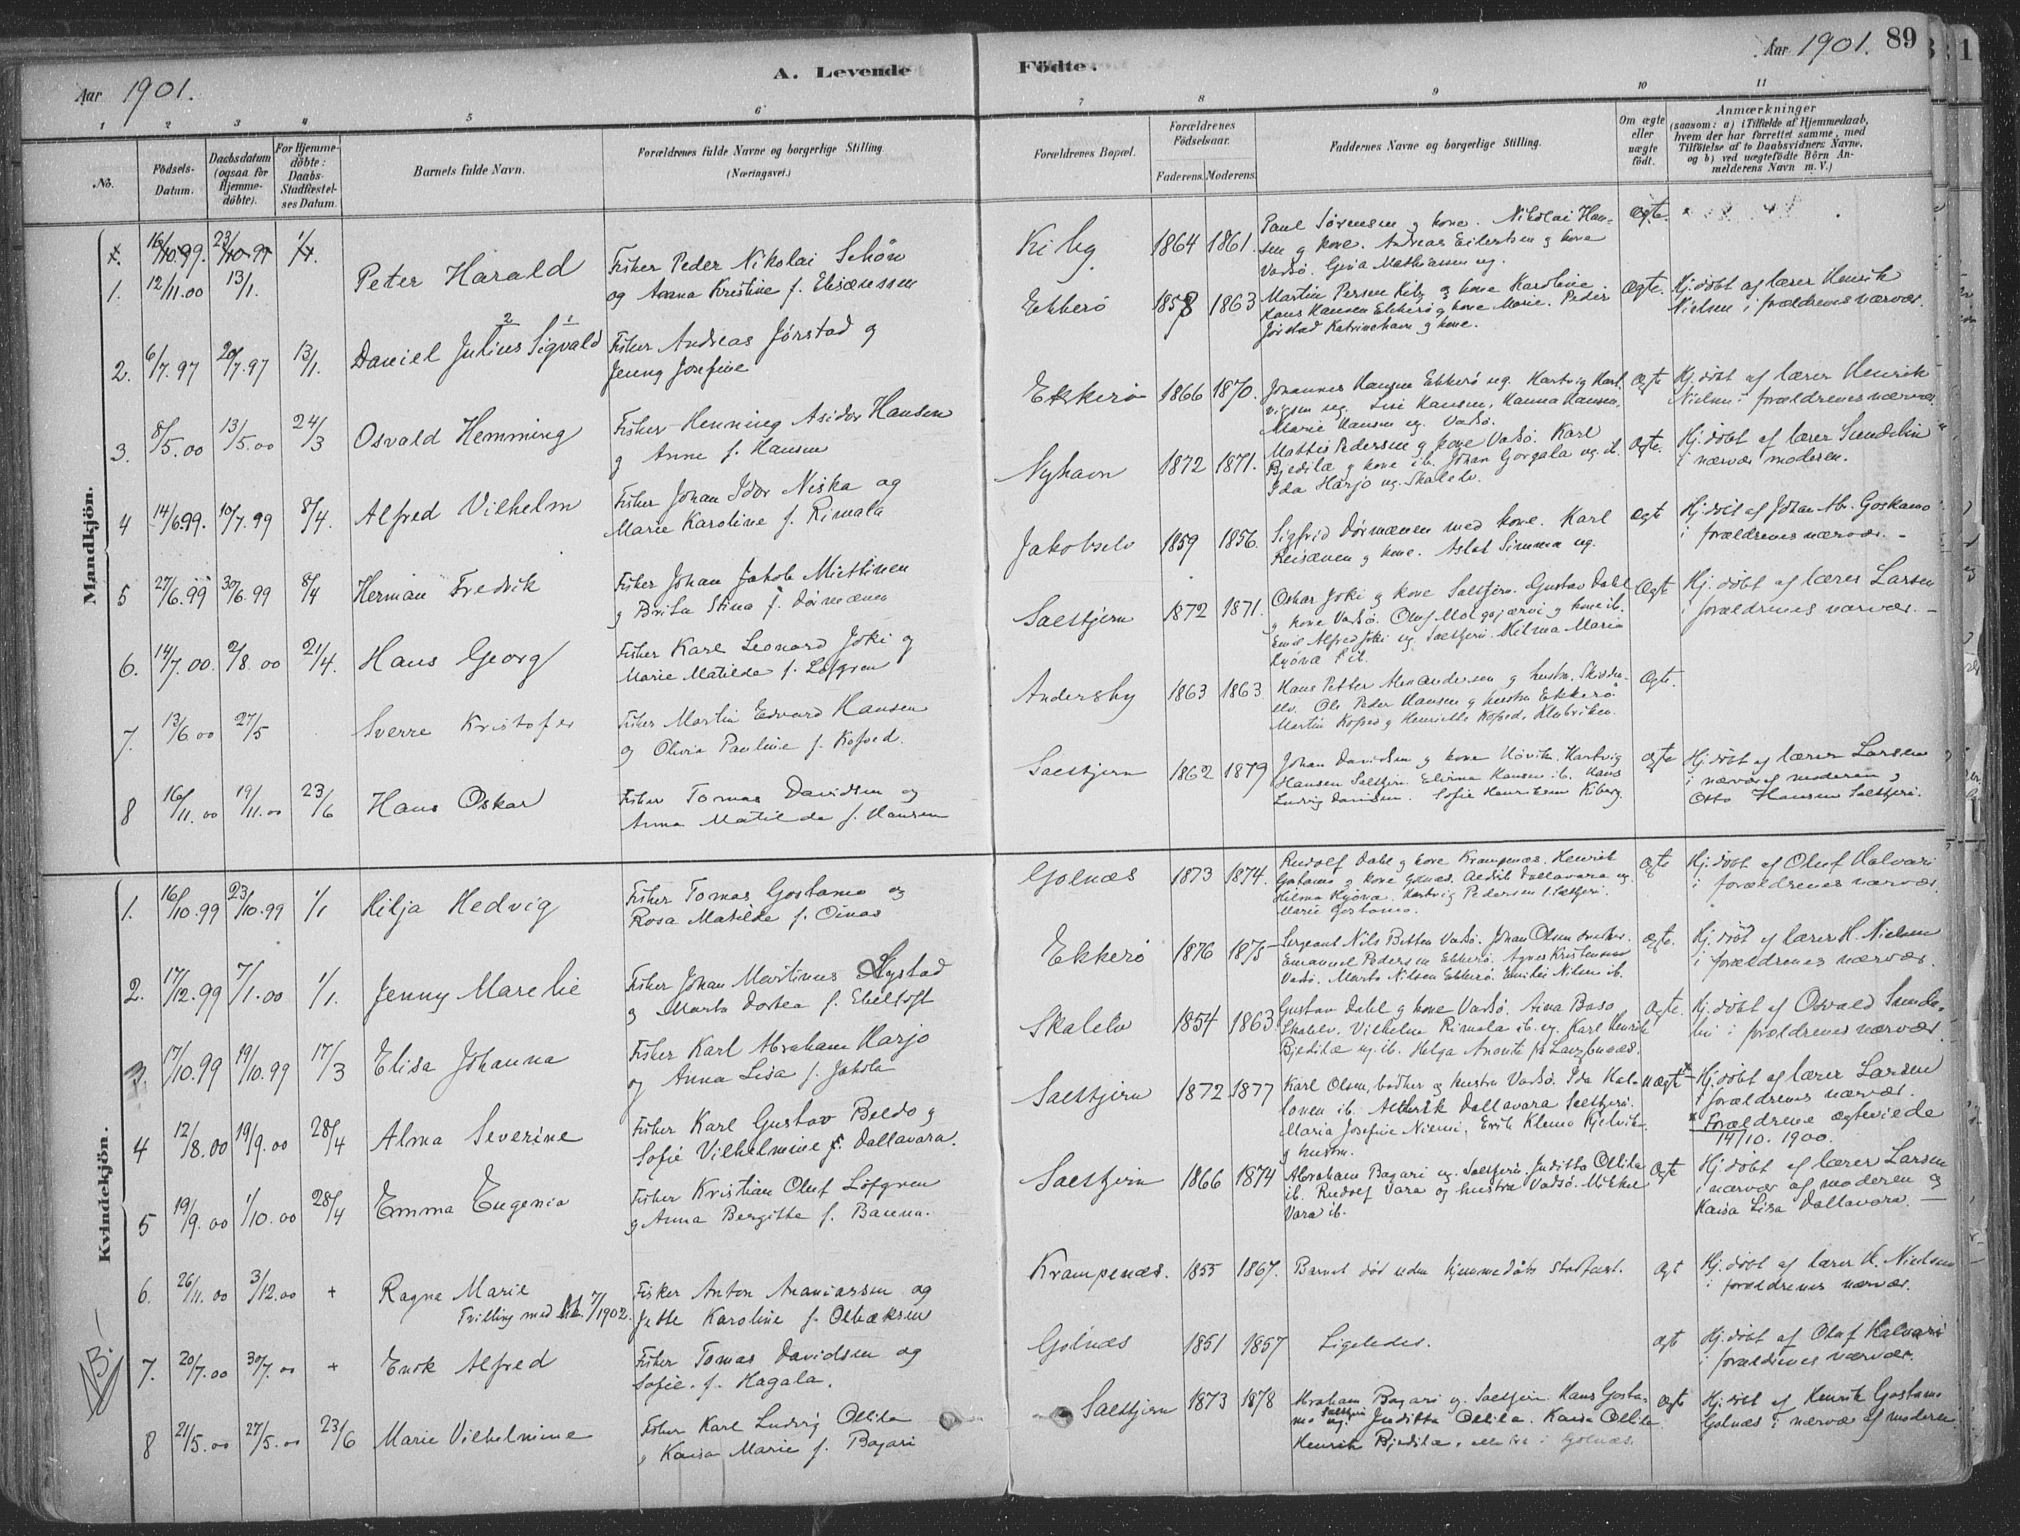 Aar 1901.
A. Levende
Födte.
Aar 1901.
89
1 2 3 4 5 6 7 8 9 10 11
No.
Födsels-
Datum.
Daabsdatum
(ogsaa for
Hjemme-
döbte).
For Hjemme-
döbte:
Daabs-
Stadfæstel-
ses Datum.
Barnets fulde Navn.
Forældrenes fulde Navne og borgerlige Stilling
(Næringsvei.)
Forældrenes Bopæl.
Forældrenes
Födselsaar.
Faderens. Moderens.
Faddernes Navne og borgerlige Stilling.
Om ægte
eller
uægte
födt.
Anmærkninger
(saasom: a) i Tilfælde af Hjemmedaab,
hvem der har forrettet samme, med
Tilföielse af to Daabsvidners Navne,
og b) ved uægtefödte Börn An-
melderens Navn m.V.)
Mandkjön.
1. 12/11.00 13/1. Peter Harald
Fisker Peder Nikolai Schön
og Anna Kristine f. Eliseussen
Kiby 1864 1861.
Paul Sørensen g kone. Nikolai Han-
sen g kone. Andreas Eilertsen g kone
Vadsö. Gina Mathiasen ug.
Ægte.
2. 6/7.97 20/7.97 13/1. Daniel Julius Sigvald
Fisker Andreas Jörstad g
Jenny Josefine
Ekkerö 1858 1863
Martin Persen Kiby g kone Karoline.
Hans Hansen Ekkerö g kone Marie. Peder
Jörstad g kone.
Ægte.
Hj. döbt af lærer Henrik
Nielsen i forældrenes nærvær.
3. 8/5.00 13/5.00 24/3 Osvald Hemming
Fisker Henning Asidor Hansen
g Anne f. Hansen
Ekkerö 1866 1870.
Johannes Hansen Ekkerö ug. Hartvig Hart-
vigsen ug. Lise Hansen, Hanna Hansen,
Marie Hansen ug. Vadsö.
Ægte
Hj. döbt af lærer Henrik
Nielsen i forældrenes nærvær.
4 14/6.99. 10/7.99 8/4. Alfred Vilhelm
Fisker Johan Idor Niska og
Marie Karoline f. Rimala
Nyhavn 1872 1871.
Mattis Pedersen g kone Vadsö. Karl
Bjedilæ g kone ib. Johan Gorgala ug. ib.
Ida Harjo ug. Skalelv.
Ægte.
Hj. döbt af lærer Sundelin
i nærvær moderen.
5 27/6.99 30/6.99 8/4 Herman Fredrik
Fisker Johan Jakob Miettinen
g Brita Stina f. Dörmænen
Jakobselv 1859 1856.
Sigfrid Dörmænen med kone. Karl
Reisænen g kone. Aslat Simma ug.
Ægt
Hj. döbt af Johan Abr. Goskamo
i forældrenes nærvær. -
6. 14/7.00. 2/8.00 21/4. Hans Georg
Fisker Karl Leonard Joki og
Marie Matilde f. Löfgren
Saltjern 1872 1871.
Oskar Joki g kone Saltjern. Gustav Dahl
g kone Vadsö. Oluf Molgajærvi g kone ib.
Emil Alfred Joki ug. Saltjern. Hilma Maria
Kyöva ib.
Ægte
Hj. döbt af lærer Larsen
i forældrenes nærvær. -
7. 13/6.00 27/5 Sverre Kristofer
Fisker Martin Edvard Hansen
og Olivia Pauline f. Kofoed.
Andersby 1863 1863
Hans Petter Alexandersen g hustr. Skidden-
elv. Ole Peder Hansen g hustru Ekkerö
Martin Kofoed g Henriette Kofoed, Klubviken.
Ægte.
8 16/11.00 19/11.00 23/6 Hans Oskar
Fisker Tomas Davidsen og
Anna Matilde f. Hansen
Saltjern 1862 1879
Johan Davidsen g kone Hövik. Hartvig
Hansen Saltjern. Elvine Hansen ib. Hans
Ludvig Davidsen. Sofie Henriksen Kiberg.
Ægte
Hj. döbt af lærer Larsen
i nærvær af moderen g
Otto Hansen Saltjern.
Kvindekjön.
1. 16/10.99 23/10.99 1/1 Hilja Hedvig
Fisker Tomas Gostamo og
Rosa Matilde f. Oinas
Golnæs 1873 1874.
Rudolf Dahl g kone Krampenæs. Henrik
Gostamo g kone Golnæs. Aldrik Dallavara ug.
Hilma Kyöva. Hartvig Pedersen i Saltjern.
Marie Gostamo.
Ægte
Hj. döbt af Oluf Halvari
i forældrenes nærvær.
2. 17/12.99 7/1.00 1/1. Jenny Marelie
Fisker Johan Martinus Nystad
g Marta Dortea f. Ebeltoft
Ekkerö 1876 1875
Sergeant Nils Betten Vadsö. Johan Olsen
Emanuel Pedersen Ekkerö. Agnes Kristensen
Vadsö. Marta Nilsen Ekkerö. Emilie Nilsen ib.
Ægte.
Hj. döbt af lærer H. Nielsen
i forældrenes nærvær.
3. 17/10.99 19/10.99 17/3 Elisa Johanna
Fisker Karl Abraham Harjo
og Anna Lisa f. Jakola
Skalelv 1854 1863.
Gustav Dahl g kone Vadsö. Aina Baso
Skalelv. Vilhelm Rimala ib. ug. Karl Henrik
Bjedilæ ug. ib. Helga Ananite fra Langbunæs.
Ægte.
Hj. döbt af Osvald Sunde-
lin i forældrenes nærvær.
4 12/8.00 19/9.00 28/4 Alma Severine
Fisker Karl Gustav Beldo g
Sofie Vilhelmine f. Dallavara.
Saltjern 1872 1877
Karl Olsen, g hustru Vadsö. Ida Hal-
onen ib. Alderik Dallavara Saltjern.
Maria Josefine Niemi. Erik Klemo Kjelvik.
g hustru.
uægt*
Hj. döbt af lærer Larsen
i forældrenes nærvær.
* Forældrene ægteviede
14/10. 1900.
5 19/9.00 1/10.00 28/4 Emma Eugenia
Fisker Kristian Oluf Löfgren
g Anna Bergitte f. Banna.
Saltjern 1866 1874
Abraham Bagari ug. Saltjern. Juditta Ollila
ib. Rudolf Vara og hustru Vadsö. Mikkel
Vara ib.
Ægte
Hj. döbt af lærer Larsen
i nærvær af moderen og
Kaisa Lisa Dallavara. -
6. 26/11.00 3/12.00 + Ragna Marie
Tvilling med 7/1902.
Fisker Anton Ananiassen og
Jette Karoline f. Olbæksen
Krampenæs. 1855 1867.
Barnet död uden hjemmedåbs stadfæst.
Ægt
Hj. döbt af lærer H. Nielsen
i forældrenes nærvær.
7. 20/7.00 30/7.00 + Enok Alfred
Fisker Tomas Davidsen og
Sofie. f. Hagala.
Golnæs 1851 1857
Ligeledes.
ægt
Hj. döbt af Oluf Halvari
i forældrenes nærvær.
8 21/5.00 27/5.00 23/6 Marie Vilhelmine
Fisker Karl Ludvig Ollila
g Kaisa Marie f. Bagari
Saltjern 1873 1878
Abraham Bagari ug. Saltjern. Hans Gosta-
mo Saltjern ug. Juditta Ollila. Kaisa Ollila.
Henrik Bjedilæ, i Golnæs.
Ægte
Hj. döbt af Henrik Gostamo
Golnæs i nærvær af moderen